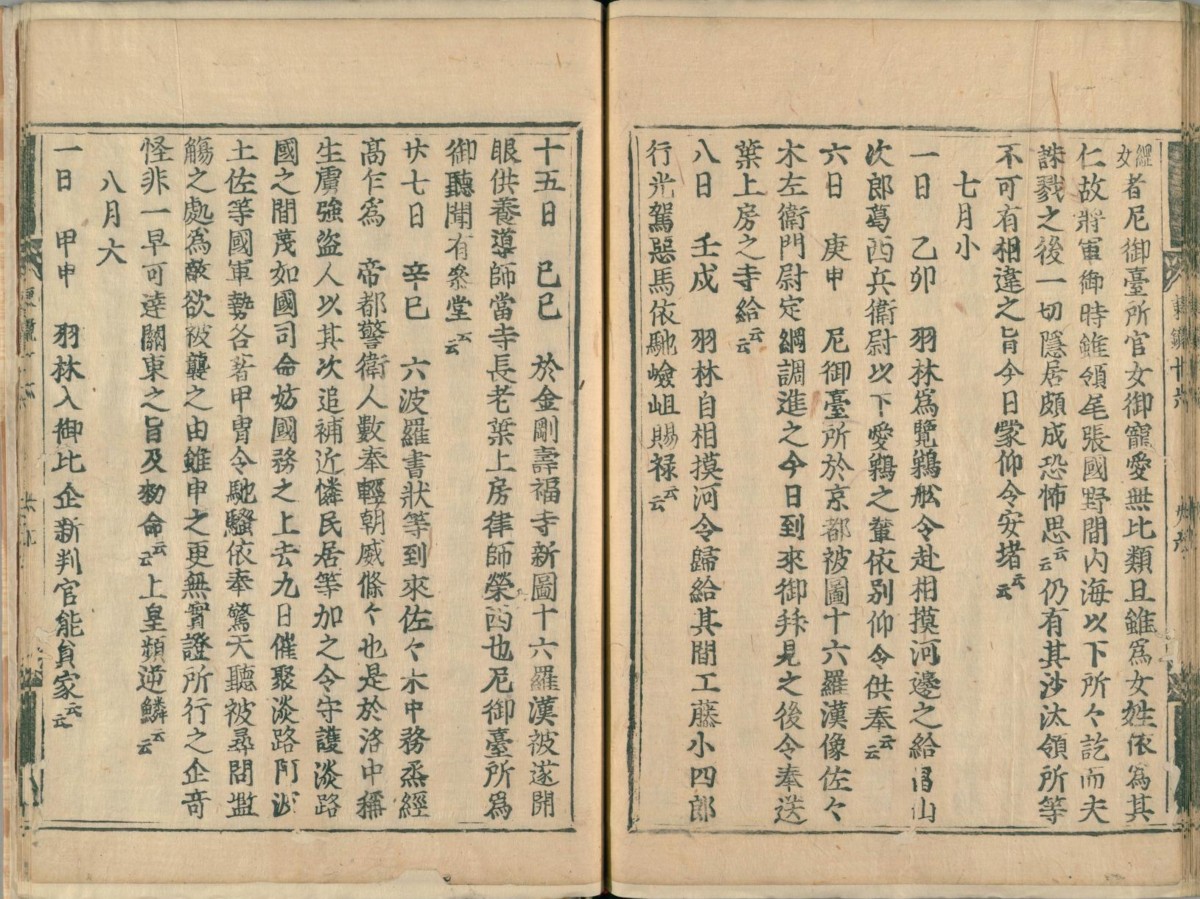 組女者尼御臺所官女御寵愛無比類且雖爲女姓依爲其
仁故將軍御時雖領尾張國野間内海以下所々訖而夫
誅戮之後一切隱居頗成恐怖思云云仍有其沙汰領所等
不可有相違之旨今日蒙仰令安堵云云
七月小
一日 乙卯 羽林爲覽鵜舩令赴相摸河邊之給畠山
次郎葛西兵衛尉以下愛鵜之輩依別仰令供奉云云
六日 庚申 尼御臺所於京都被圖十六羅漢像佐々
木左衛門尉定綱調進之今日到來御拜見之後令奉送
葉上房之寺給云云
八日 壬戌 羽林自相摸河令歸給其間工藤小四郎
行光駕惡馬依馳嶮岨賜禄云云
十五日 己巳 於金剛壽福寺新圖十六羅漢被遂開
眼供養導師當寺長老葉上房律師榮西也尼御臺所爲
御聽聞有參堂云云
廿七日 辛巳 六波羅書狀等到來佐々木中務烝經
高乍爲 帝都警衛人數奉輕朝威條々也是於洛中稱
生虜強盜人以其次追補近憐民居等加之令守護淡路
國之間蔑如國司命妨國務之上去九日催聚淡路阿波
土佐等國軍勢各著甲冑令馳騷依奉驚天聽被尋問濫
觴之處爲敵欲被襲之由雖申之更無實證所行之企奇
怪非一早可達關東之旨及勅命云云上皇頻逆鱗云云
八月大
一日 甲申 羽林入御比企新判官能員家云云